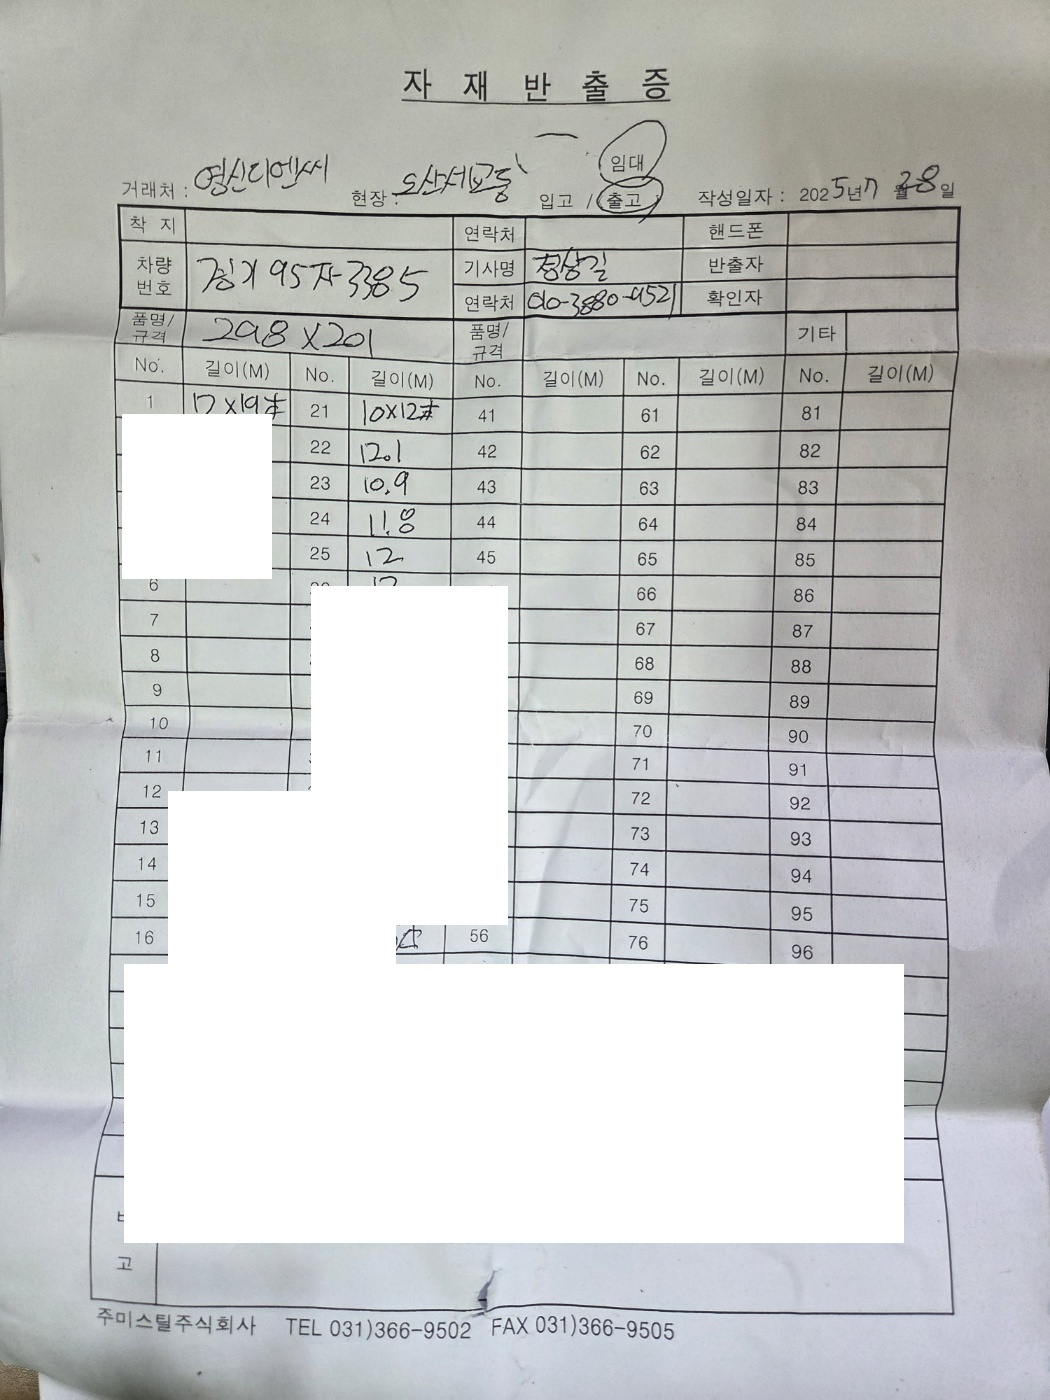 자 재 반 출 증
거래처 : 영신디엔씨 현장 : 오산세교동 입고 / 출고 임대 작성일자 : 2025년 7월 28일
착 지 연락처 핸드폰
차량번호 경기95자3385 기사명 정상길 반출자
연락처 010-3880-9521 확인자
품명/규격 298 X 201 품명/규격 기타
No. 길이(M) No. 길이(M) No. 길이(M) No. 길이(M) No. 길이(M)
1 12 X 19本 21 10X12本 41 61 81
22 12.1 42 62 82
23 10.9 43 63 83
24 11.8 44 64 84
25 12 45 65 85
6 66 86
7 67 87
8 68 88
9 69 89
10 70 90
11 71 91
12 72 92
13 73 93
14 74 94
15 75 95
16 56 76 96
고
주미스틸주식회사 TEL 031)366-9502 FAX 031)366-9505